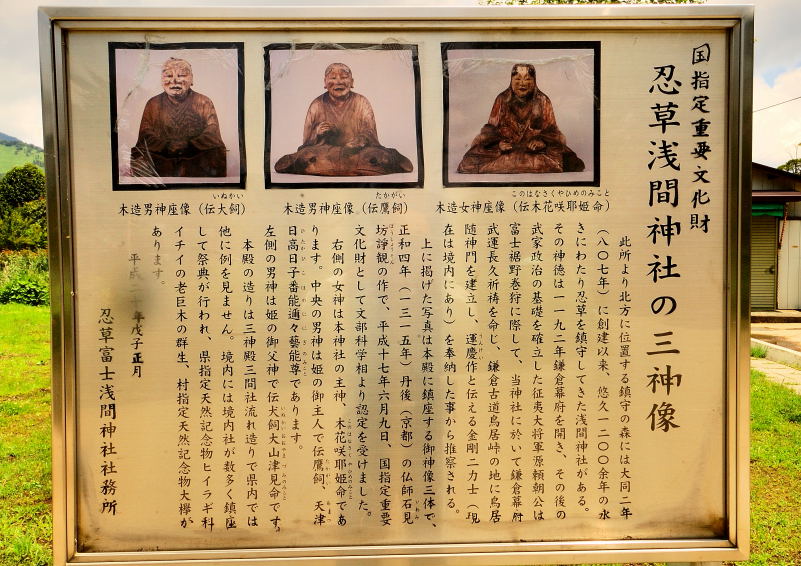 国指定重要文化財
忍草浅間神社の三神像
このはなさくやひめのみこと
木造女神座像（伝木花咲耶姫命）
たかがい
木造男神座像（伝鷹飼）
いぬかい
木造男神座像（伝犬飼）
此所より北方に位置する鎮守の森には大同二年
（八〇七年）に創建以来、悠久一二〇〇余年の永
きにわたり忍草を鎮守してきた浅間神社がある。
その神徳は一一九二年鎌倉幕府を開き、その後の
武家政治の基礎を確立した征夷大将軍源頼朝公は
富士裾野巻狩に際して、当神社に於いて鎌倉幕府
武運長久祈祷を命じ、鎌倉古道鳥居峠の地に鳥居
随神門を建立し、運慶作と伝える金剛二力士（現
うんけい
在は境内にあり）を奉納した事から推察される。
上に掲げた写真は本殿に鎮座する御神像三体で、
正和四年（一三一五年）丹後（京都）の仏師石見
いわみ
坊諍観の作で、平成十七年六月九日、国指定重要
文化財として文部科学相より認定を受けました。
右側の女神は本神社の主神、木花咲耶姫命であ
ります。中央の男神は姫の御主人で伝鷹飼、天津
日高日子番能邇々藝能尊であります。
左側の男神は姫の御父神で伝犬飼大山津見命です。
本殿の造りは三神殿三間社流れ造りで県内では
他に例を見ません。境内には境内社が数多く鎮座
して祭典が行われ、県指定天然記念物ヒイラギ科
イチイの老巨木の群生、村指定天然記念物大欅が
あります。
平成二十年戊子正月
忍草富士浅間神社社務所